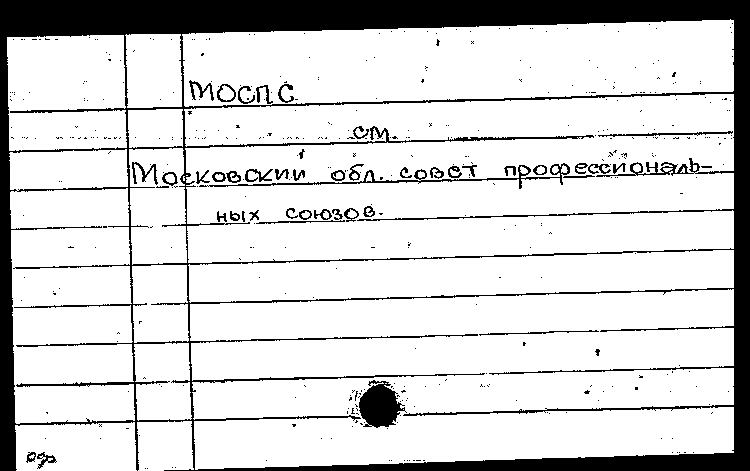 МОСПС
см.
Московский обл. совет профессиональ-
ных союзов.